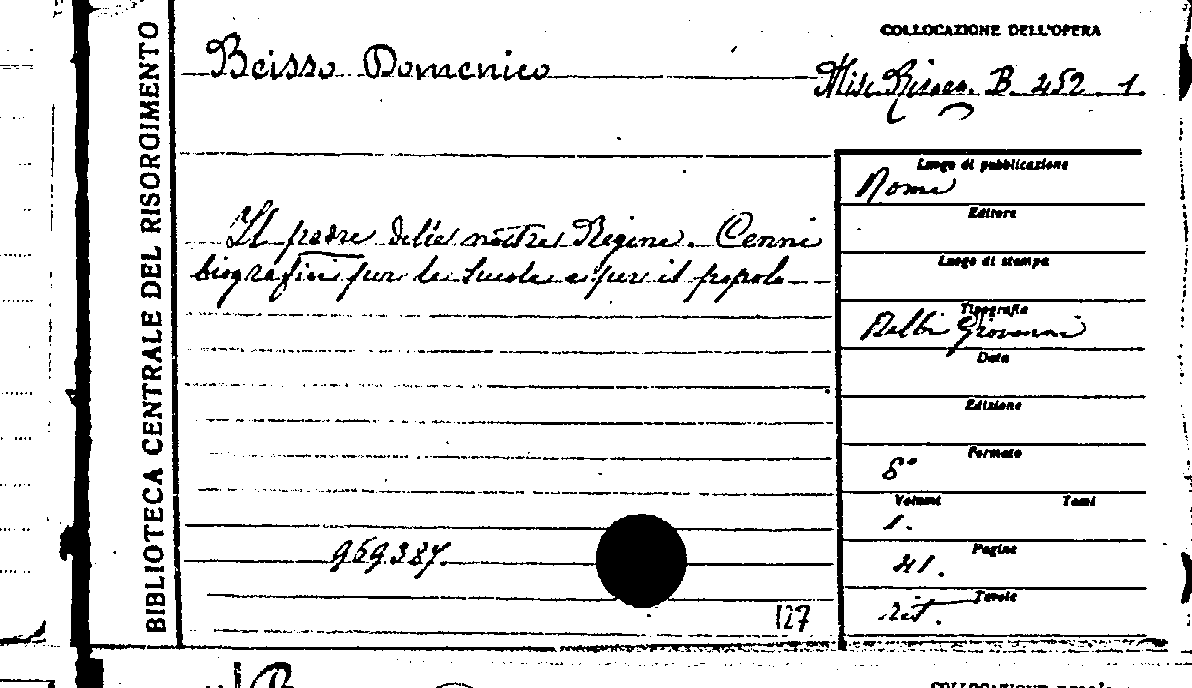 BIBLIOTECA CENTRALE DEL RISORGIMENTO
COLLOCAZIONE DELL'OPERA
Beisso Domenico
Misc. Risorg. B. 452 1.
Luogo di pubblicazione
Roma
Editore
Il padre delle nostre Regine. Cenni
biografici per le Scuole e per il popolo
Luogo di stampa
Tipografia
Balbi Giovanni
Data
Edizione
Formato
8°
Volumi Tomi
1.
969387.
Pagine
41.
Tavole
rit.
127